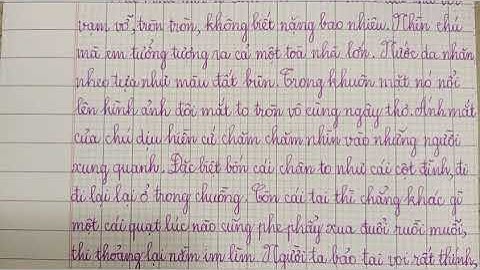 vạm vỡ, tròn tròn, không biết nặng bao nhiêu. Nhìn chú
mà em tưởng tượng ra cả một toà nhà lớn. Nước da nhăn
nheo tựa như màu đất bùn. Trong khuôn mặt nó nổi
lên hình ảnh đôi mắt to tròn vô cùng ngây thơ. Ánh mắt
của chú dịu hiền cứ chăm chăm nhìn vào những người
xung quanh. Đặc biệt bốn cái chân to như cái cột đình, đi
đi lại lại ở trong chuồng. Còn cái tai thì chẳng khác gì
một cái quạt lúc nào cũng phe phẩy xua đuổi ruồi muỗi,
thi thoảng lại nằm im lìm. Người ta bảo tai voi rất thính,